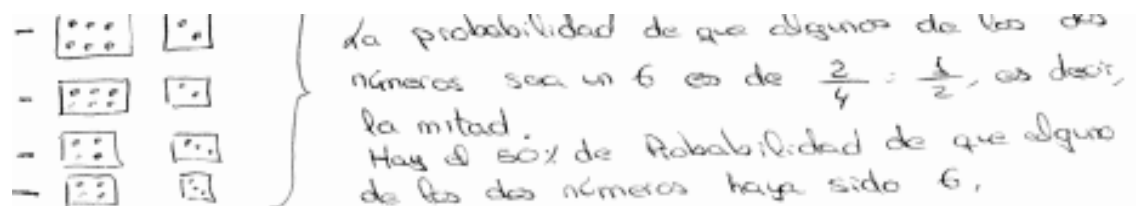 La probabilidad de que algunos de los dos
números sea un 6 es de 2/4 = 1/2, es decir,
la mitad.
Hay el 50% de Probabilidad de que alguno
de los dos números haya sido 6.